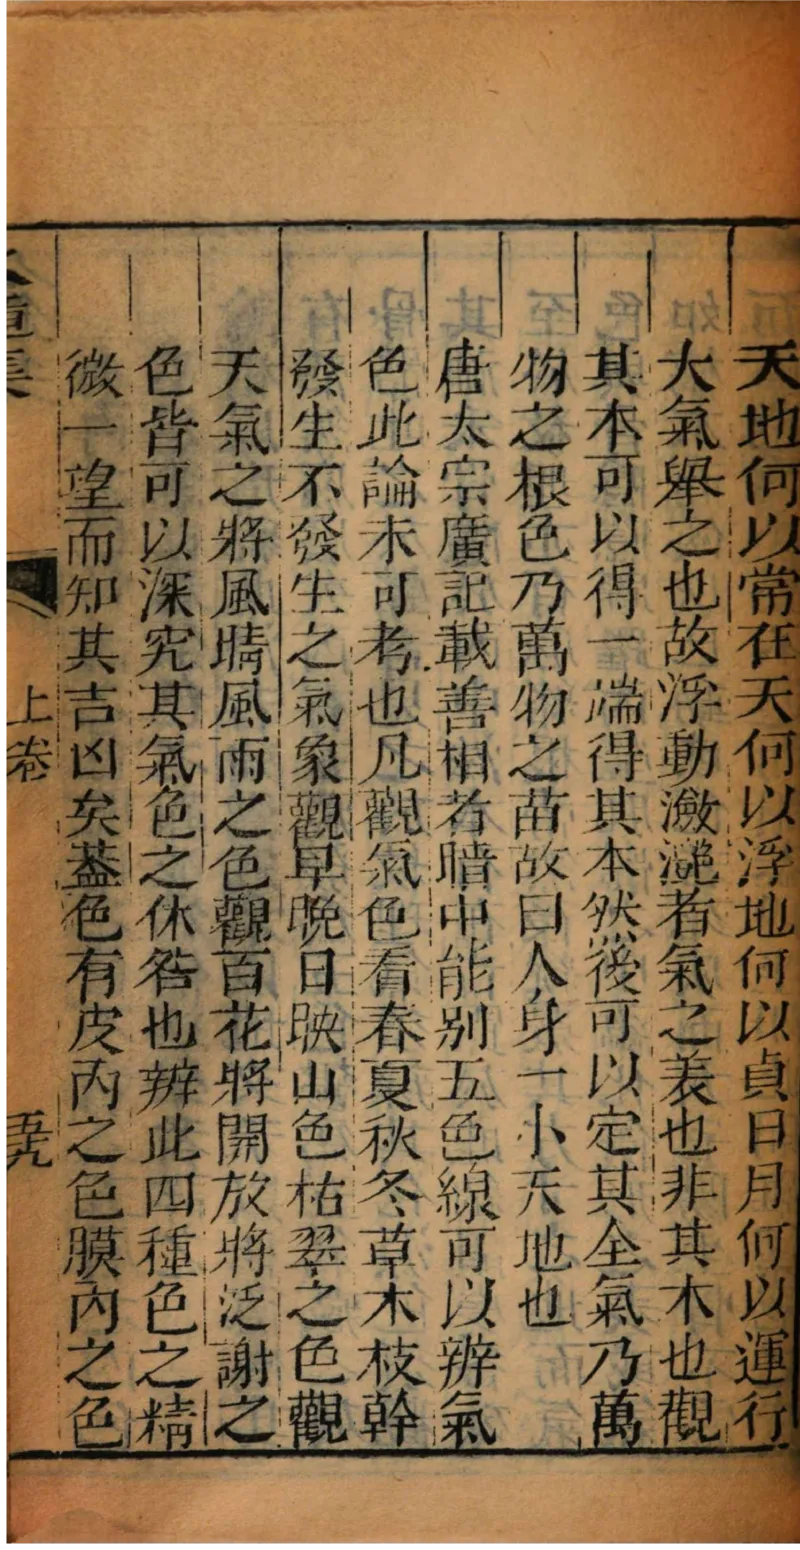 天地何以常在天何以浮地何以貞日月何以運行
大氣舉之也故浮動瀲灔者氣之表也非其木也觀
其本可以得一端得其本然後可以定其全氣乃萬
物之根色乃萬物之苗故曰人身一小天地也
唐太宗廣記載善相者暗中能别五色線可以辨氣
色此論未可考也凡觀氣色看春夏秋冬草木枝幹
發生不發生之氣象觀早晚日映山色枯翠之色觀
天氣之將風晴風雨之色觀百花將開放將泛謝之
色皆可以深究其氣色之休咎也辨此四種色之精
微一望而知其吉凶矣葢色有皮內之色膜內之色
上卷